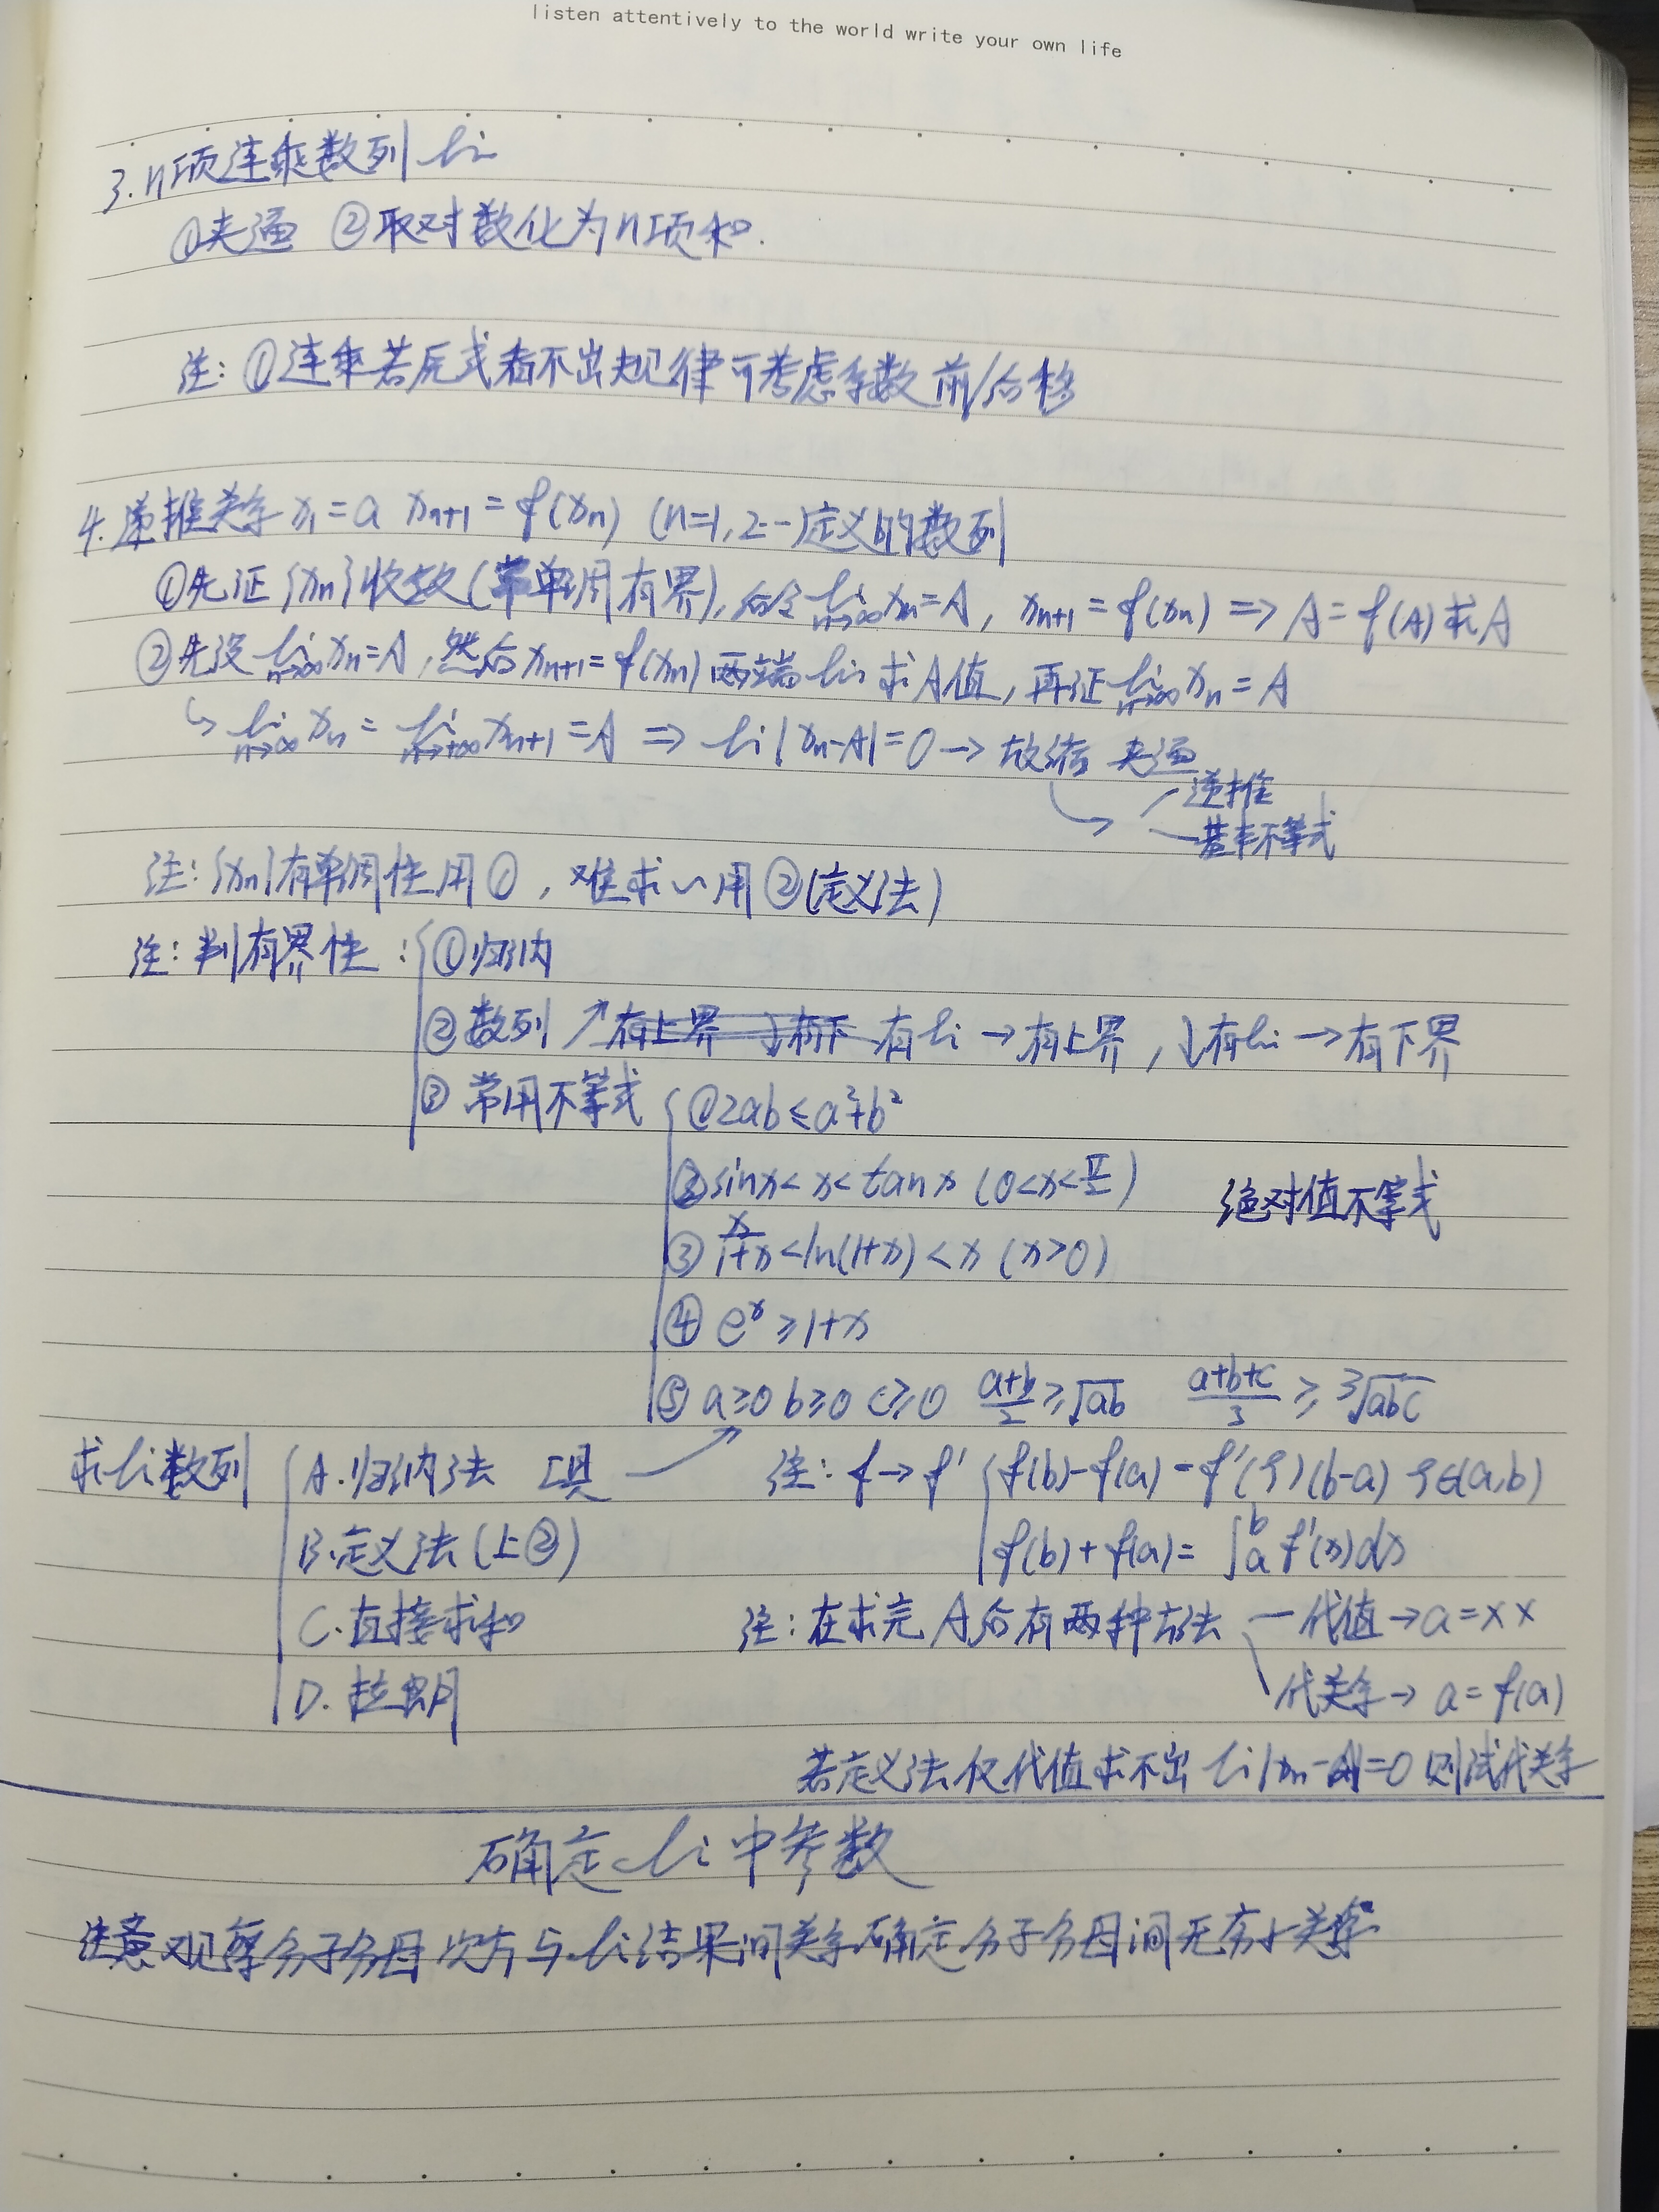 listen attentively to the world write your own life
3. n项连乘数列 li
①夹逼 ②取对数化为n项和.
注: ①连乘若原式看不出规律可考虑系数前/后移
4. 递推关系 x₁=a xₙ₊₁=f(xₙ) (n=1,2…)定义的数列
①先证{xₙ}收敛(常单调有界), 后令 li n→∞ xₙ=A, xₙ₊₁=f(xₙ) ⇒ A=f(A)求A
②先设 li n→∞ xₙ=A, 然后 xₙ₊₁=f(xₙ)两端 li 求A值, 再证 li n→∞ xₙ=A
↳ li n→∞ xₙ = li n→+∞ xₙ₊₁ =A ⇒ li |xₙ-A|=0 → 放缩 夹逼
递推
基本不等式
注: {xₙ}有单调性用①, 难求~用②(定义法)
注: 判有界性: ①归纳
②数列 ↗ 有上界 ↓有下 有 li → 有上界, ↓有 li → 有下界
③ 常用不等式 ①2ab≤a²+b²
②sinx<x<tanx (0<x<π/2) 绝对值不等式
③ x/(1+x)<ln(1+x)<x (x>0)
④ eˣ≥1+x
⑤ a≥0 b≥0 c≥0 (a+b)/2≥√ab (a+b+c)/3 ≥ ³√abc
求 li 数列 A.归纳法 工具 → 注: f→f′ f(b)-f(a)=f′(ξ)(b-a) ξ∈(a,b)
B.定义法(上②) f(b)+f(a)= ∫ₐᵇ f′(x)dx
C.直接求和 注: 在求完A后有两种方法 — 代值→a=××
D. 拉朗 代关系→ a=f(a)
若定义法仅代值求不出 li|xₙ-A|=0 则试代关系
确定 li 中参数
注意观察分子分母次方与 li 结果间关系确定分子分母间无穷小关系